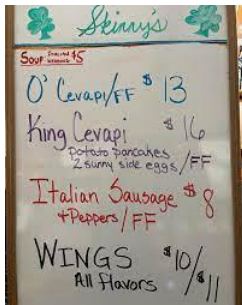 Skinny's
Soup Italian Wedding $5
O' Cevapi/FF $13
King Cevapi $16
potato pancakes
2 sunny side eggs /FF
Italian Sausage $8
+Peppers/FF
WINGS $10/$11
All Flavors